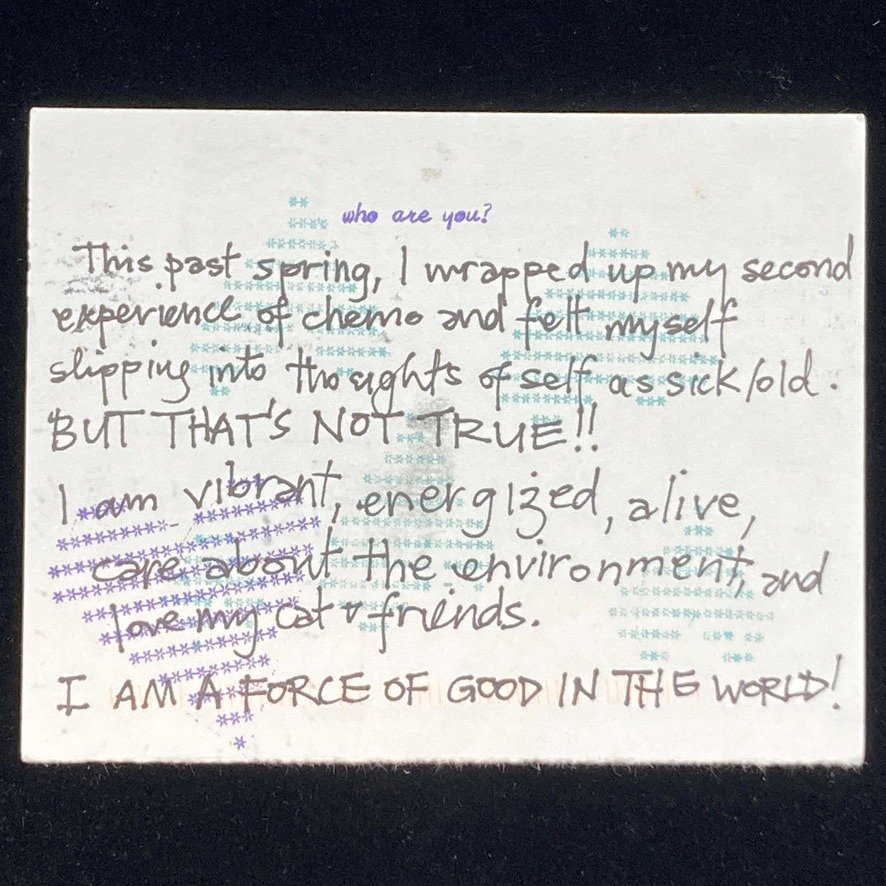 who are you?
This past spring, I wrapped up my second
experience of chemo and felt myself
slipping into thoughts of self as sick/old.
BUT THAT'S NOT TRUE!!
I am vibrant, energized, alive,
care about the environment, and
love my cat & friends.
I AM A FORCE OF GOOD IN THE WORLD!